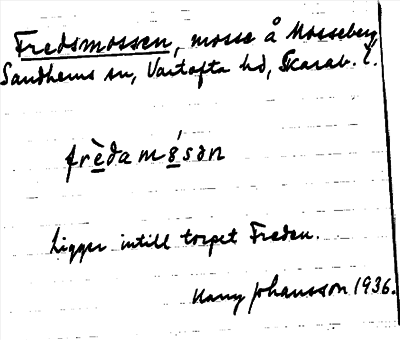 Fredsmossen, mosse å Mosseberg
Sandhems sn, Vartofta hd, Skarab. l.
frè̱damǿ̱sən
Ligger intill torpet Freden.
Harry Johansson 1936.